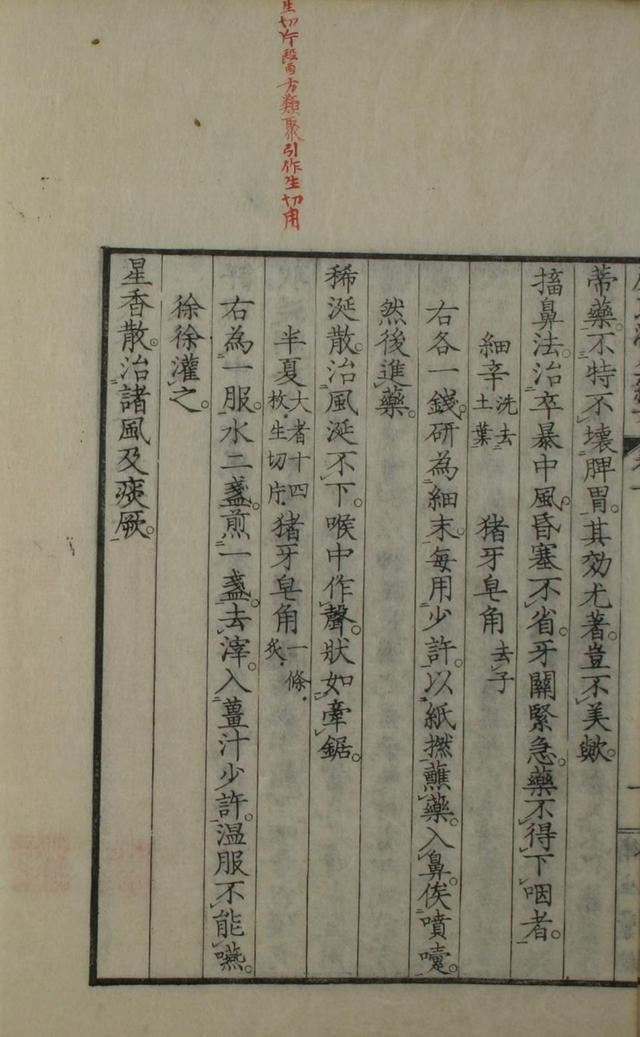 生切片段西方類聚引作生切用
蒂藥。不特不壞脾胃。其効尤著。豈不美歟。
搐鼻法。治卒暴中風。昏塞不省。牙關緊急。藥不得下咽者。
細辛洗去土葉　猪牙皂角去子
右各一錢。研為細末。每用少許。以紙撚蘸藥。入鼻。俟噴嚏。
然後進藥。
稀涎散。治風涎不下。喉中作聲。狀如牽鋸。
半夏大者十四枚。生切片。猪牙皂角一條。炙。
右為一服。水二盞。煎一盞。去滓。入薑汁少許。温服。不能嚥。
徐徐灌之。
星香散。治諸風及痰厥。